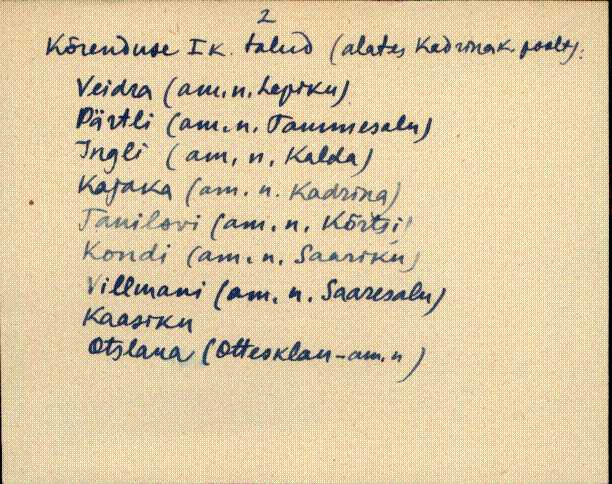 2
Kõrenduse I k. talud (alates Kadrina k. poolt):
Veidra (am. n. Lepiku)
Pärtli (am. n. Tammesalu)
Ingli (am. n. Kalda)
Kajaka (am. n. Kadrina)
Tanilovi (am. n. Kõrtsi)
Kondi (am. n. Saariku)
Villmani (am. n. Saaresalu)
Kaasiku
Otslana (Ottesklau-am. n)